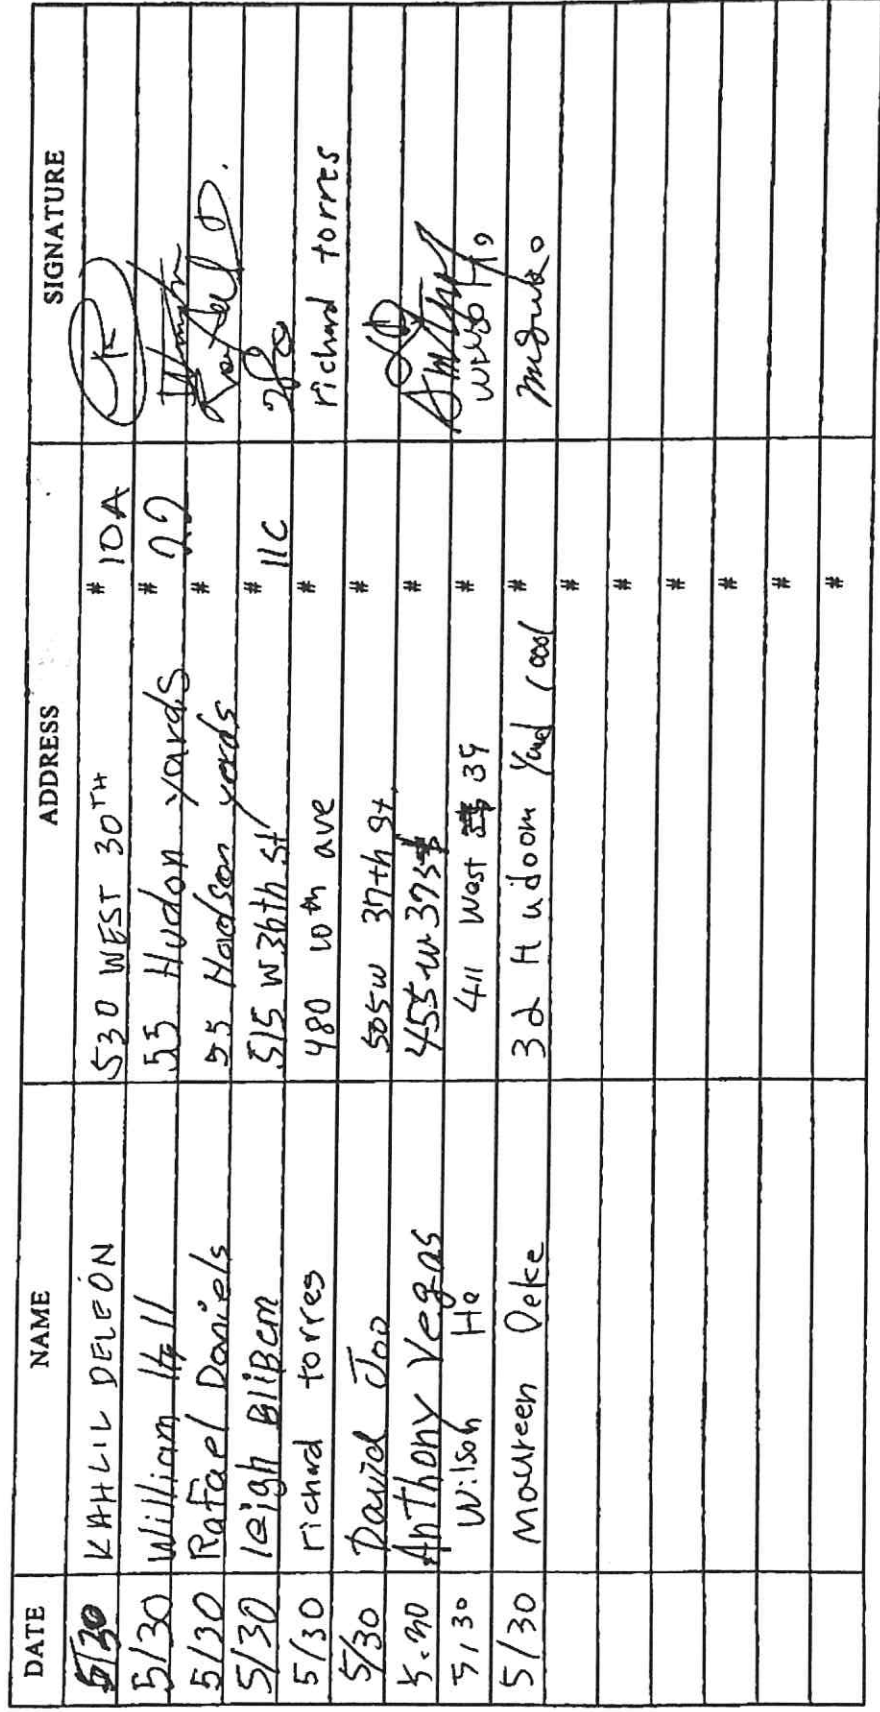 DATE NAME ADDRESS SIGNATURE
5/30 KAHLIL DELEÓN 530 WEST 30TH # 10A K
5/30 William Hall 55 Hudon yards # 22
5/30 Rafael Daniels 55 Hudson yards # Rafael D.
5/30 leigh BliBcm 515 W 36th st # 11C
5/30 richard torres 480 10th ave # richard torres
5/30 David Joo 505 W 37th st #
5.30 Anthony Vegas 455 W 37 st #
5/30 Wilson He 411 West 39 # Wilson He
5/30 Maureen Deke 32 Hudoom Yard rood #
#
#
#
#
#
#